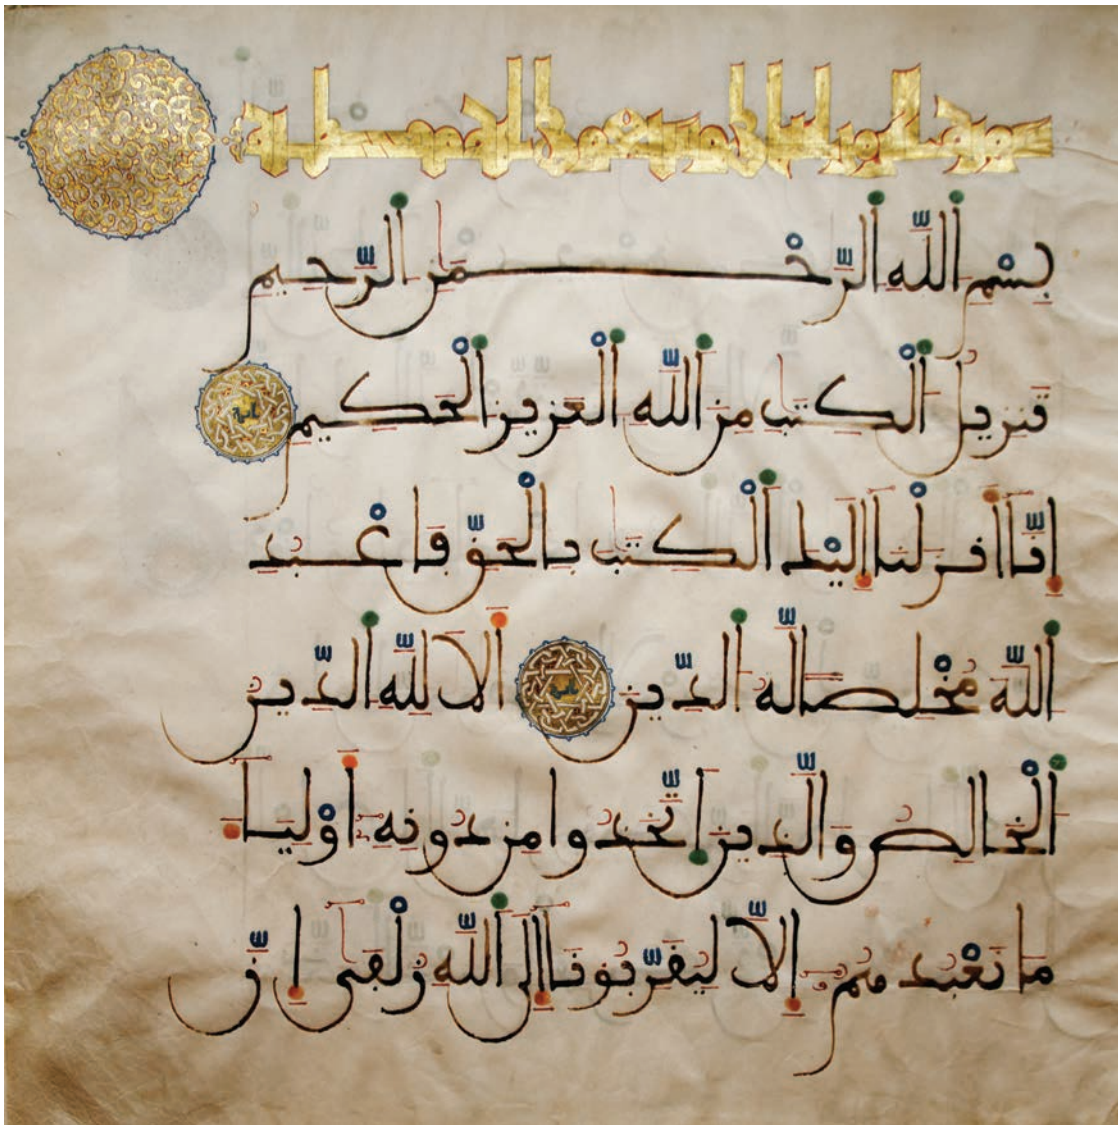 سورة الزمر وسبعون مكية
بِسْمِ اللَّهِ الرَّحْمَنِ الرَّحِيمِ
تَنزِيلُ الْكِتَبِ مِنَ اللَّهِ الْعَزِيزِ الْحَكِيمِ اية
إِنَّا أَنزَلْنَا إِلَيْكَ الْكِتَبَ بِالْحَقِّ فَاعْبُدِ
اللَّهَ مُخْلِصًا لَّهُ الدِّينَ اية أَلَا لِلَّهِ الدِّينُ
الْخَالِصُ وَالَّذِينَ اتَّخَذُوا مِن دُونِهِ أَوْلِيَا
مَا نَعْبُدُهُمُ إِلَّا لِيُقَرِّبُونَا إِلَى اللَّهِ زُلْفَى إِنَّ